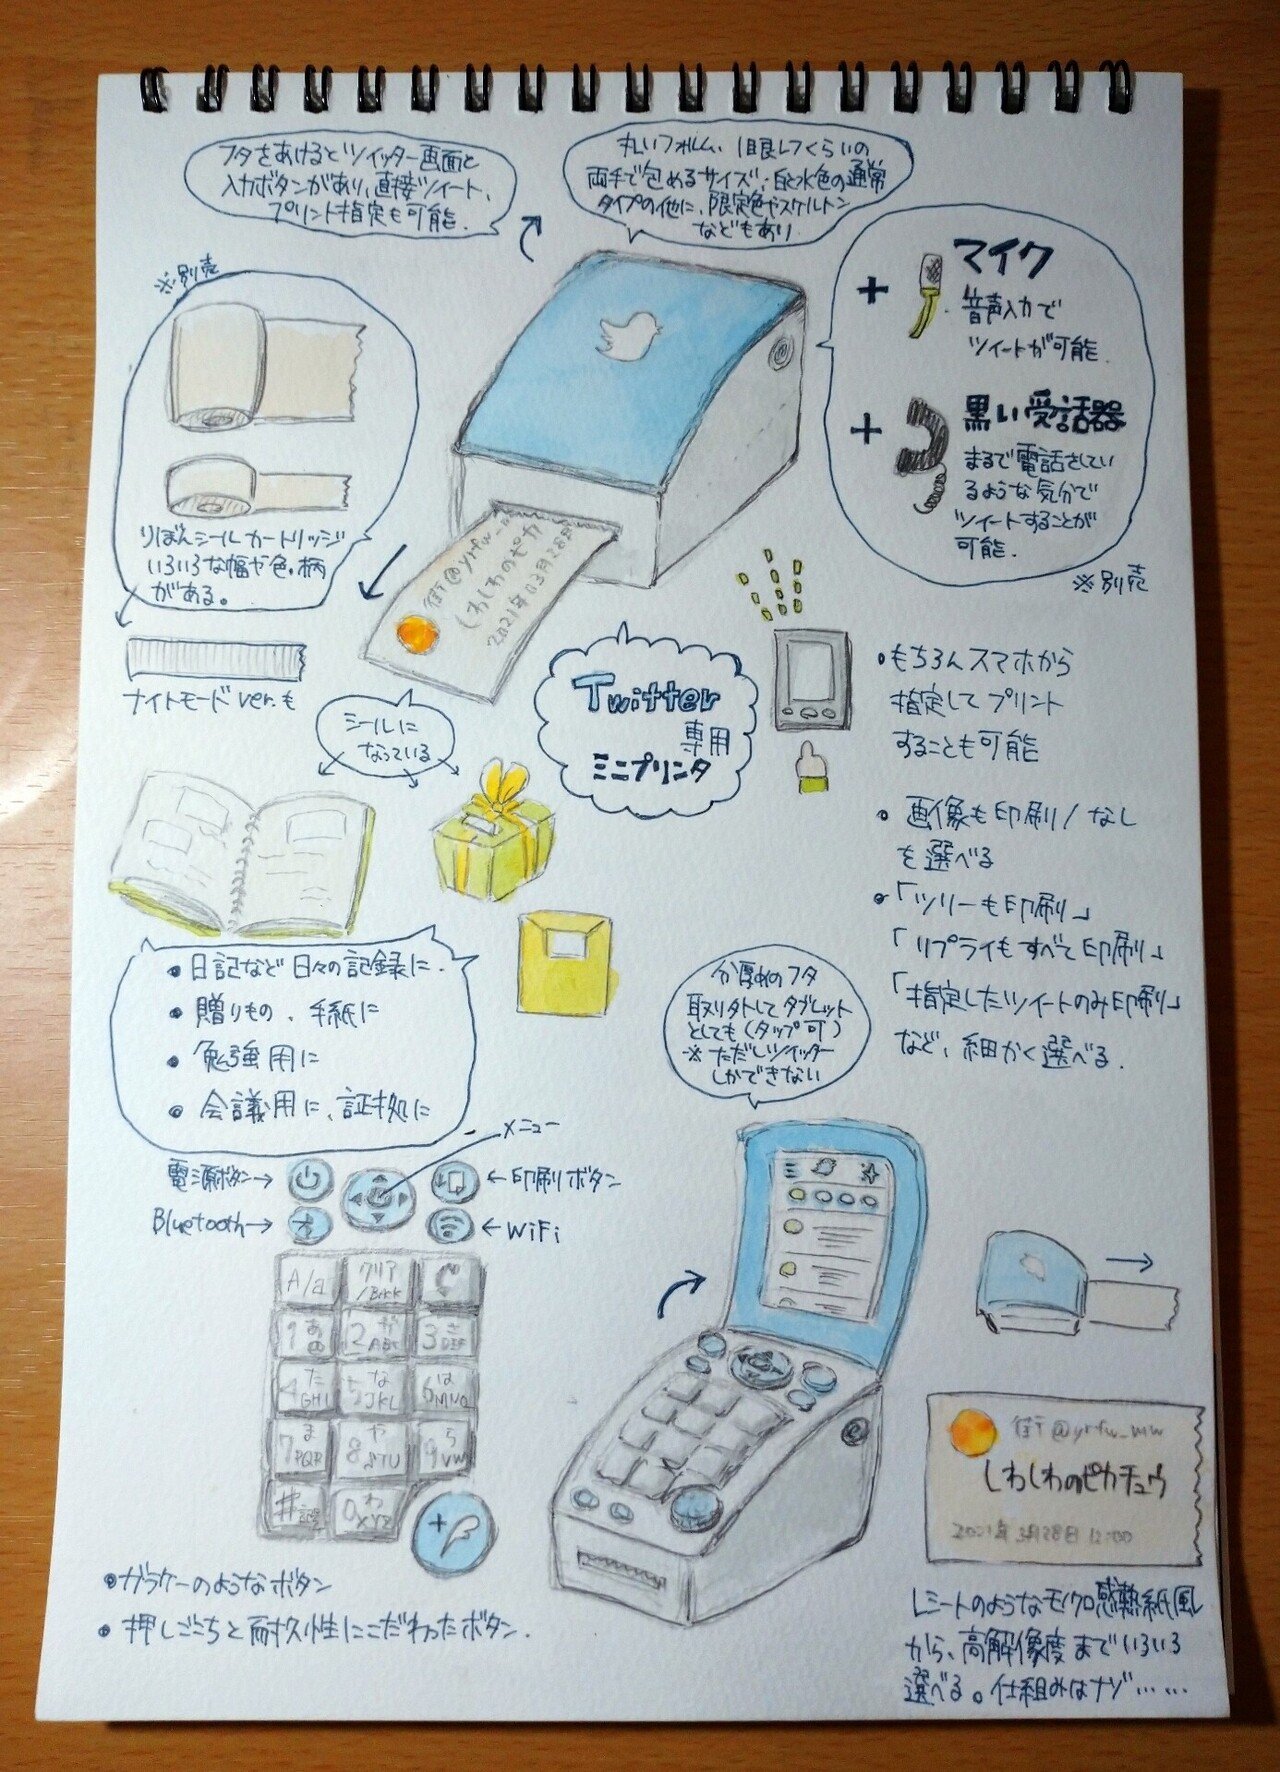 フタをあけるとツイッター画面と
入力ボタンがあり、直接ツイート、
プリント指定も可能.
丸いフォルム、1眼レフくらいの
両手で包めるサイズ；白と水色の通常
タイプの他に、限定色やスケルトン
などもあり
※別売
りぼんシールカートリッジ
いろいろな幅や色、柄
がある。
ナイトモード ver.も
+ マイク
音声入力で
ツイートが可能.
+ 黒い受話器
まるで電話してい
るような気分で
ツイートすることが
可能.
※別売
街@yrfw_
しわしわのピカ
2021年03月28日
シールに
なっている
Twitter
専用
ミニプリンタ
・もちろんスマホから
指定してプリント
することも可能
・画像も印刷/なし
を選べる
・「ツリーも印刷」
「リプライもすべて印刷」
「指定したツイートのみ印刷」
など、細かく選べる.
・日記など日々の記録に.
・贈りもの、手紙に
・勉強用に
・会議用に、証拠に
分厚めのフタ
取り外してタブレット
としても(タップ可)
※ただしツイッター
しかできない
メニュー
電源ボタン→
←印刷ボタン
Bluetooth→
←WiFi
A/a
クリア
/Back
1あ
2か ABC
3さ DEF
4た GHI
5な JKL
6は MNO
7ま PQR
8や STU
9ら VW
#記
0わ XYZ
+
・ガラケーのようなボタン
・押しごこちと耐久性にこだわったボタン.
街@yrfw_mw
しわしわのピカチュウ
2021年3月28日 12:00
レシートのようなモノクロ感熱紙風
から、高解像度までいろいろ
選べる。仕組みはナゾ……